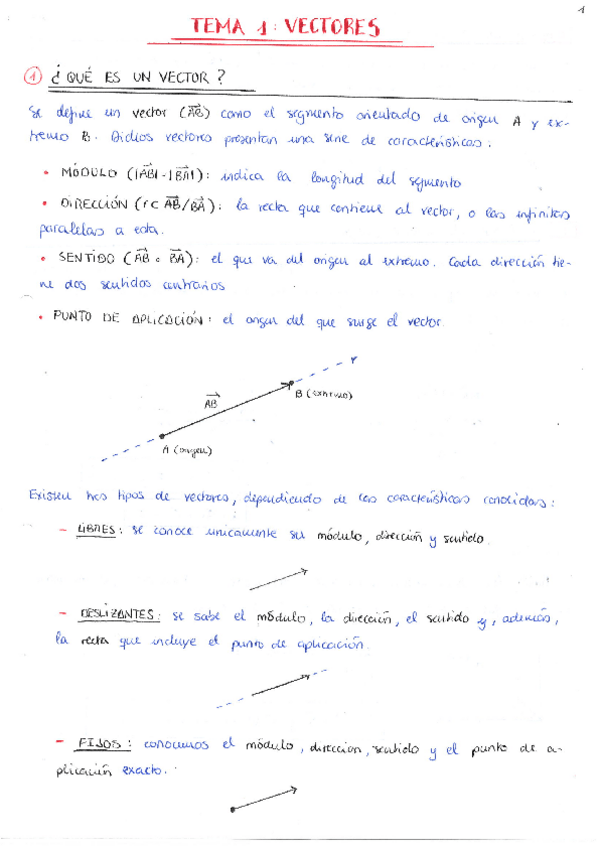 1
TEMA 1: VECTORES
① ¿QUÉ ES UN VECTOR?
Se define un vector (AB) como el segmento orientado de origen A y ex-
tremo B. Dichos vectores presentan una serie de características:
• MÓDULO (|AB|-|BA|): indica la longitud del segmento
• DIRECCIÓN (r ⊂ AB/BA): la recta que contiene al vector, o las infinitas
paralelas a esta.
• SENTIDO (AB o BA): el que va del origen al extremo. Cada dirección tie-
ne dos sentidos contrarios
• PUNTO DE APLICACIÓN: el origen del que surge el vector.
r
B (extremo)
AB
A (origen)
Existen tres tipos de vectores, dependiendo de las características conocidas:
- LIBRES: se conoce unicamente su módulo, dirección y sentido.
- DESLIZANTES: se sabe el módulo, la dirección, el sentido y, además,
la recta que incluye el punto de aplicación.
- FIJOS: conocemos el módulo, direccion, sentido y el punto de a-
plicación exacto.